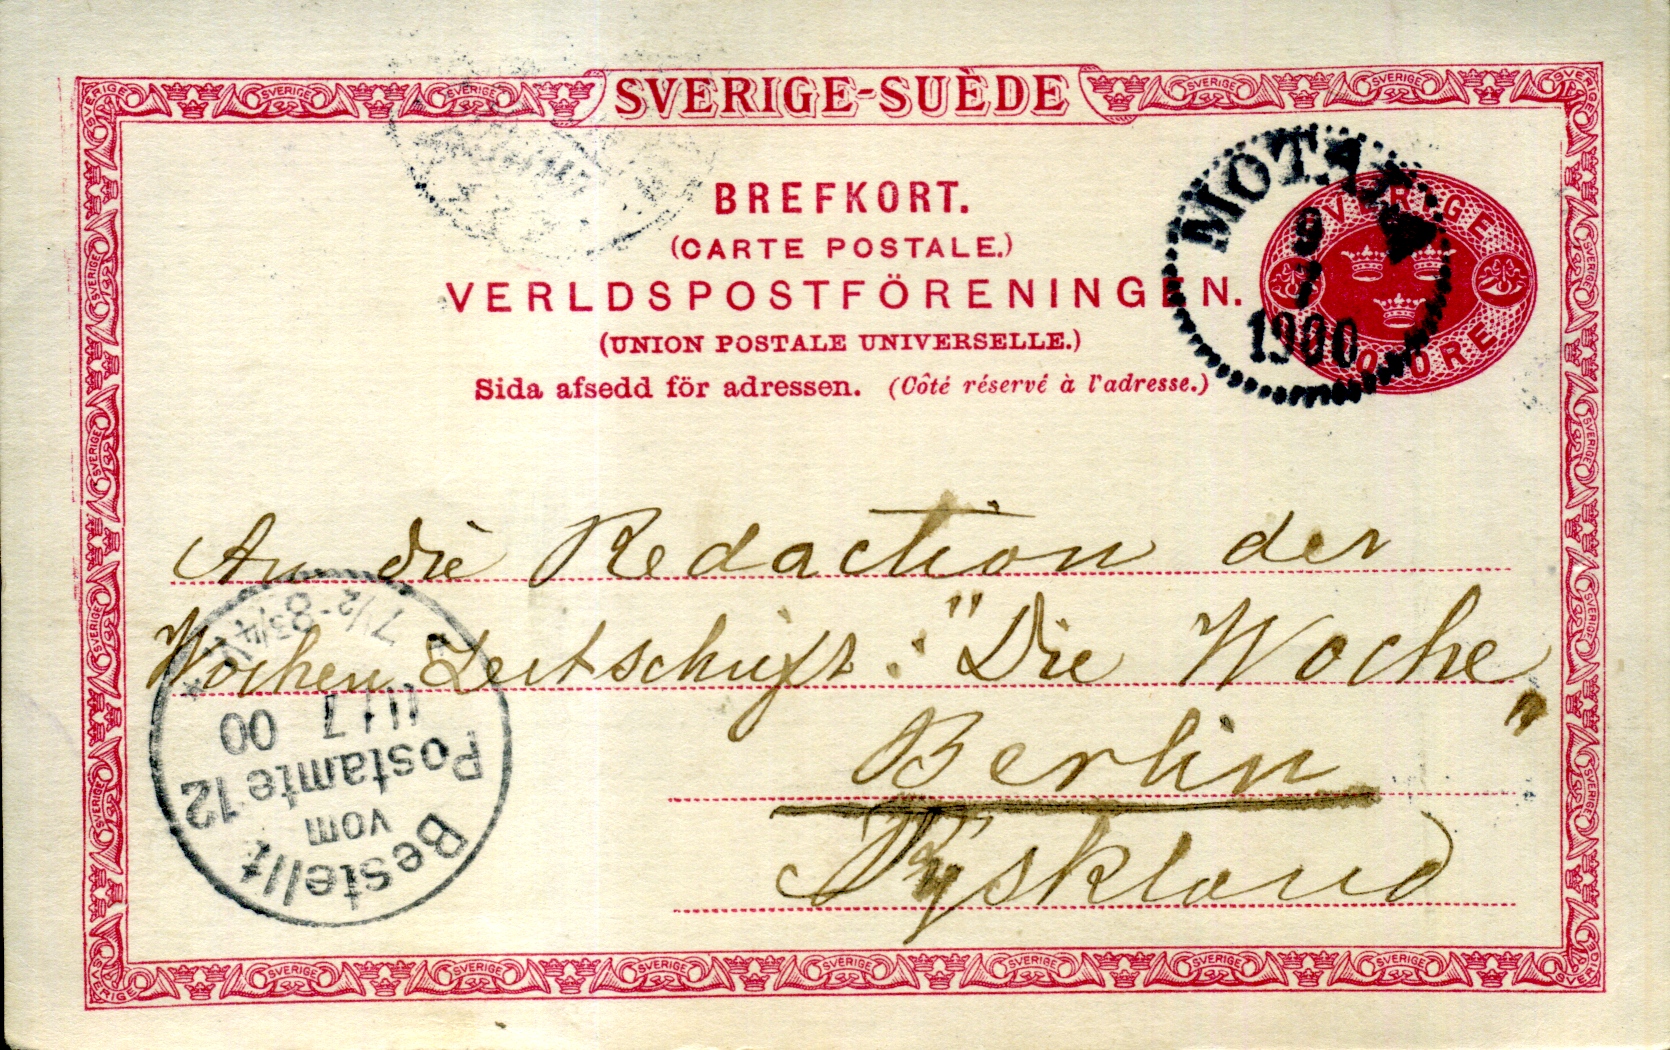 SVERIGE-SUÈDE
BREFKORT.
(CARTE POSTALE.)
VERLDSPOSTFÖRENINGEN.
(UNION POSTALE UNIVERSELLE.)
Sida afsedd för adressen. (Côté réservé à l'adresse.)
MOTALA
9
7
1900
SVERIGE
ÖRE
An die Redaction der
Wochen Zeitschrift: "Die Woche"
Berlin
Tyskland
Bestellt
vom
Postamte 12
11 7 00
7½-8¾ V.